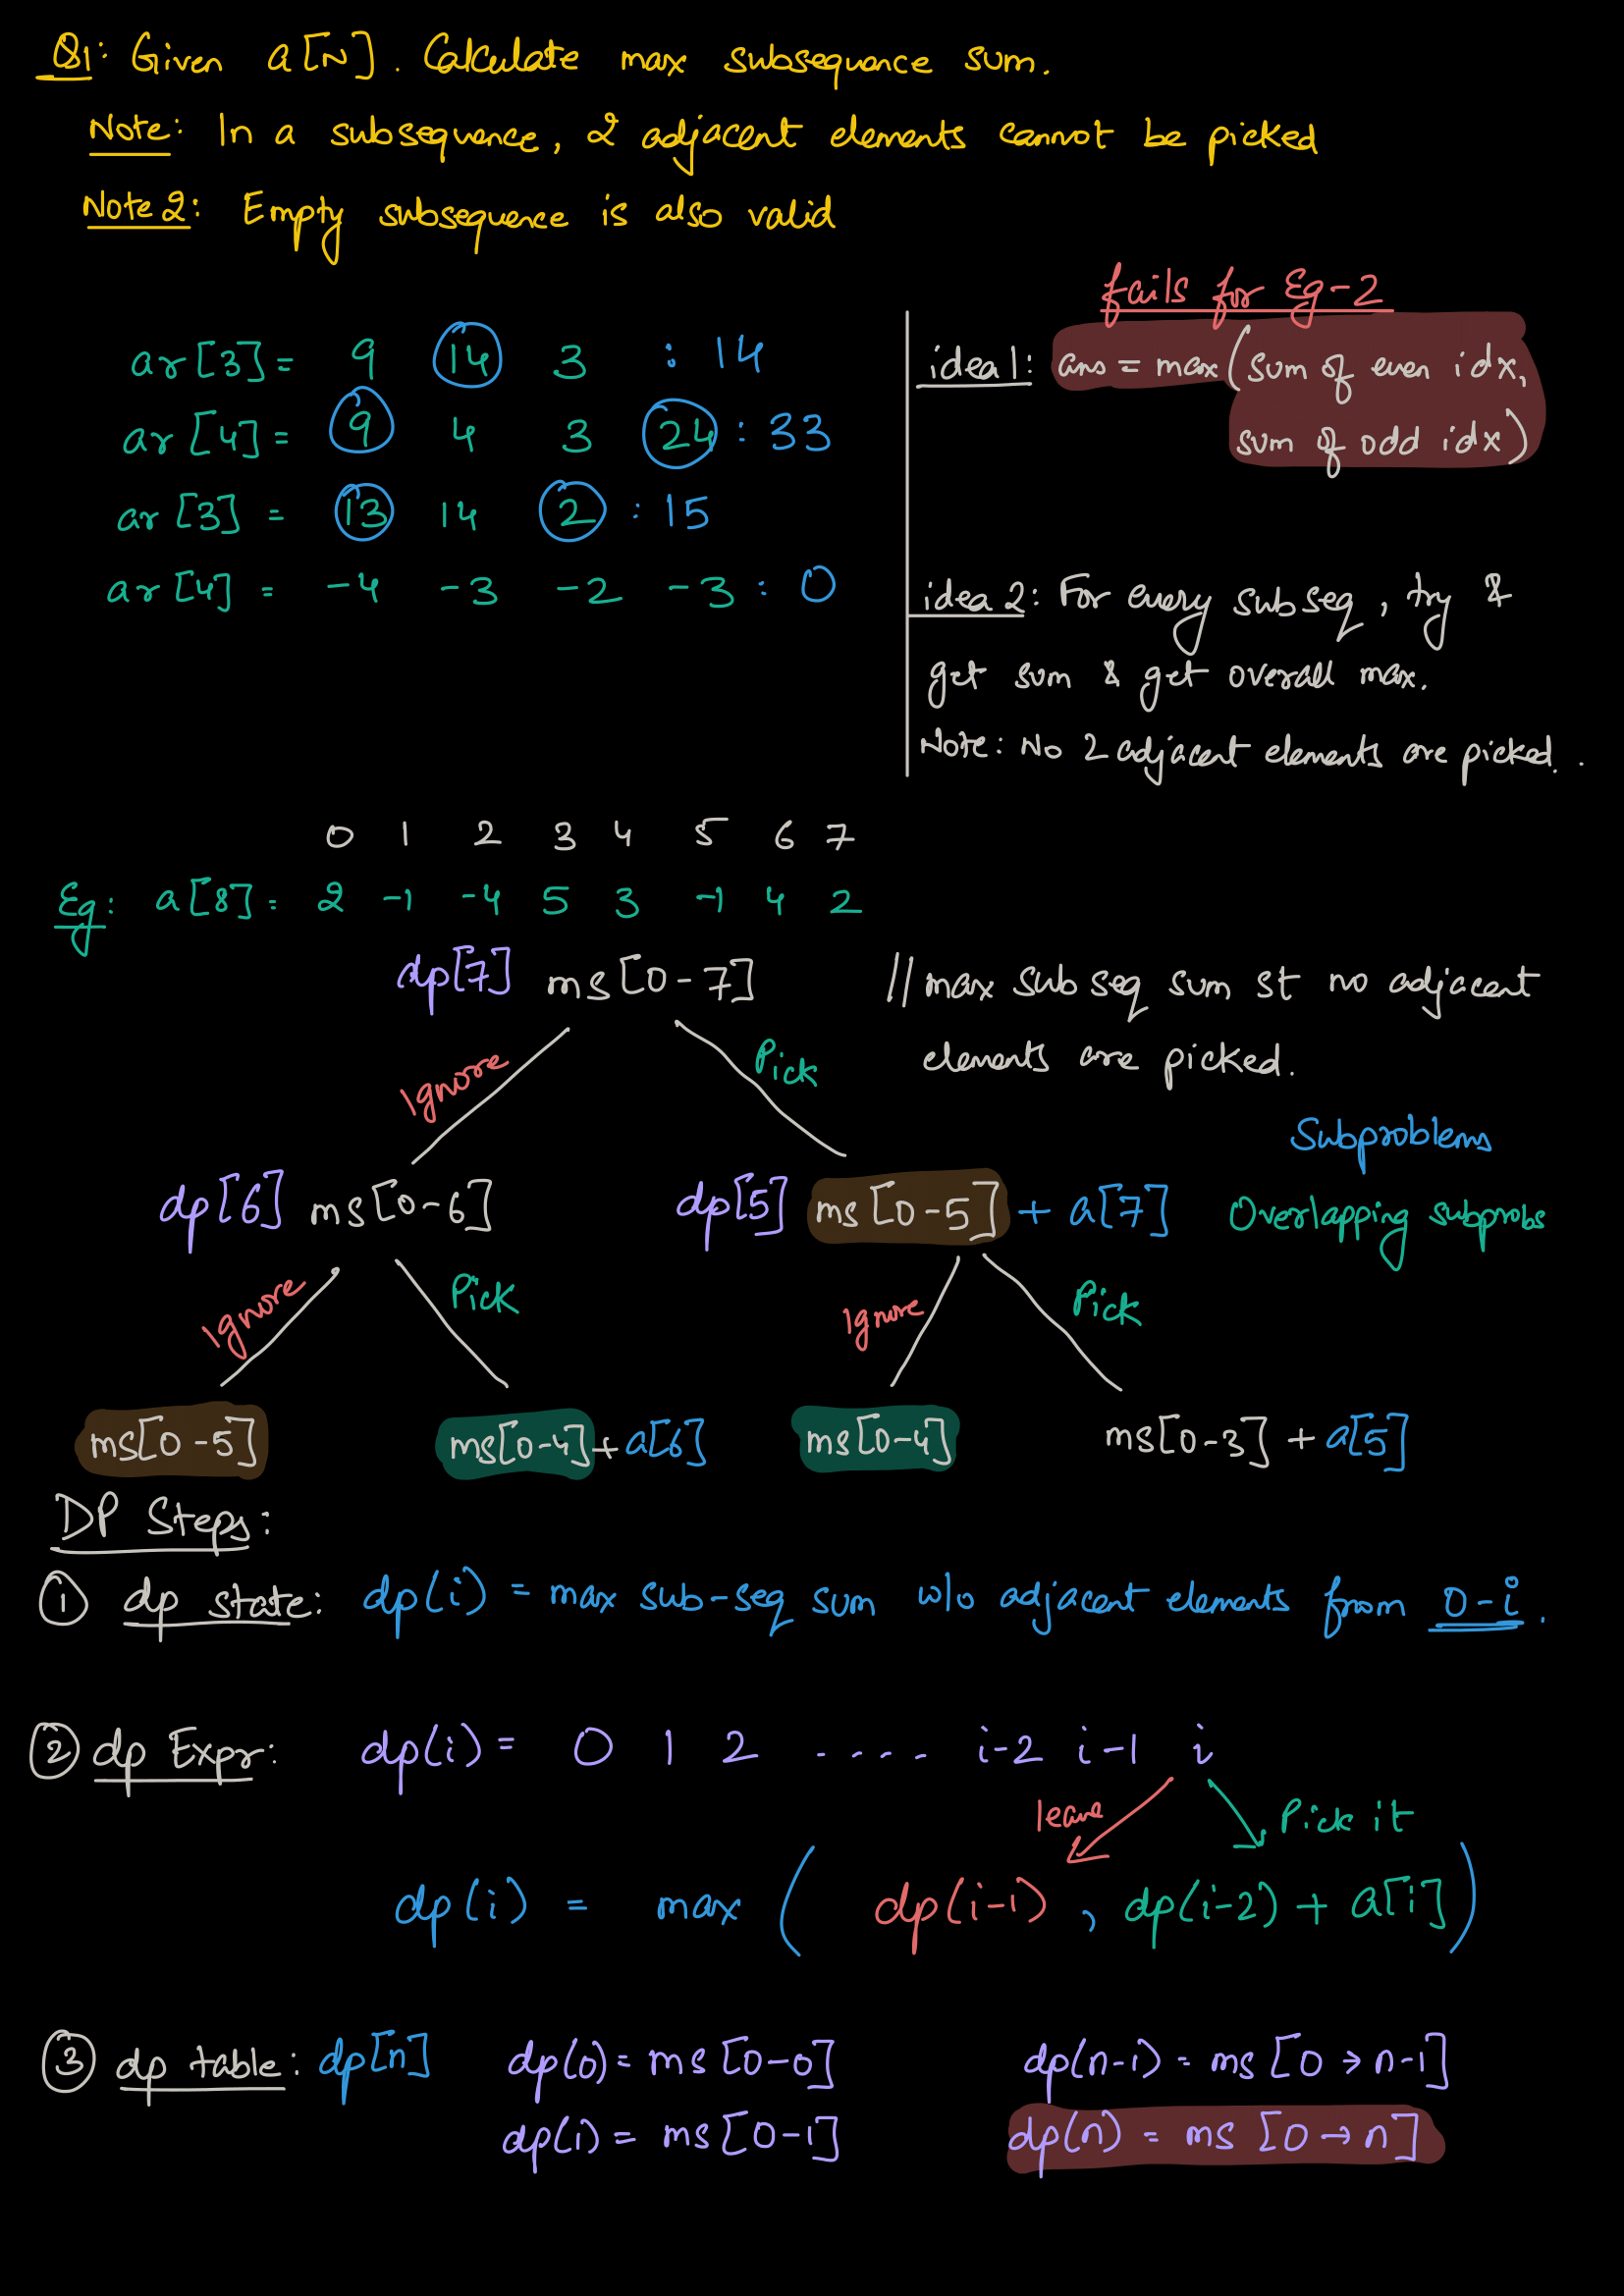 Q1: Given a[N]. Calculate max subsequence sum.
Note: In a subsequence, 2 adjacent elements cannot be picked
Note 2: Empty subsequence is also valid
ar[3] = 9 14 3 : 14
ar[4] = 9 4 3 24 : 33
ar[3] = 13 14 2 : 15
ar[4] = -4 -3 -2 -3 : 0
fails for Eg-2
idea 1: ans = max(sum of even idx,
sum of odd idx)
idea 2: For every subseq, try &
get sum & get overall max.
Note: No 2 adjacent elements are picked.
0 1 2 3 4 5 6 7
Eg: a[8] = 2 -1 -4 5 3 -1 4 2
dp[7] ms[0-7] // max sub seq sum st no adjacent
elements are picked.
Ignore Pick
Subproblems
dp[6] ms[0-6] dp[5] ms[0-5] + a[7] Overlapping subprobs
Ignore Pick Ignore Pick
ms[0-5] ms[0-4] + a[6] ms[0-4] ms[0-3] + a[5]
DP Steps:
1 dp state: dp(i) = max sub-seq sum w/o adjacent elements from 0-i.
2 dp Expr: dp(i) = 0 1 2 .... i-2 i-1 i
leave Pick it
dp(i) = max ( dp(i-1) , dp(i-2) + a[i] )
3 dp table: dp[n] dp(0) = ms[0-0] dp(n-1) = ms[0→n-1]
dp(1) = ms[0-1] dp(n) = ms [0→n]